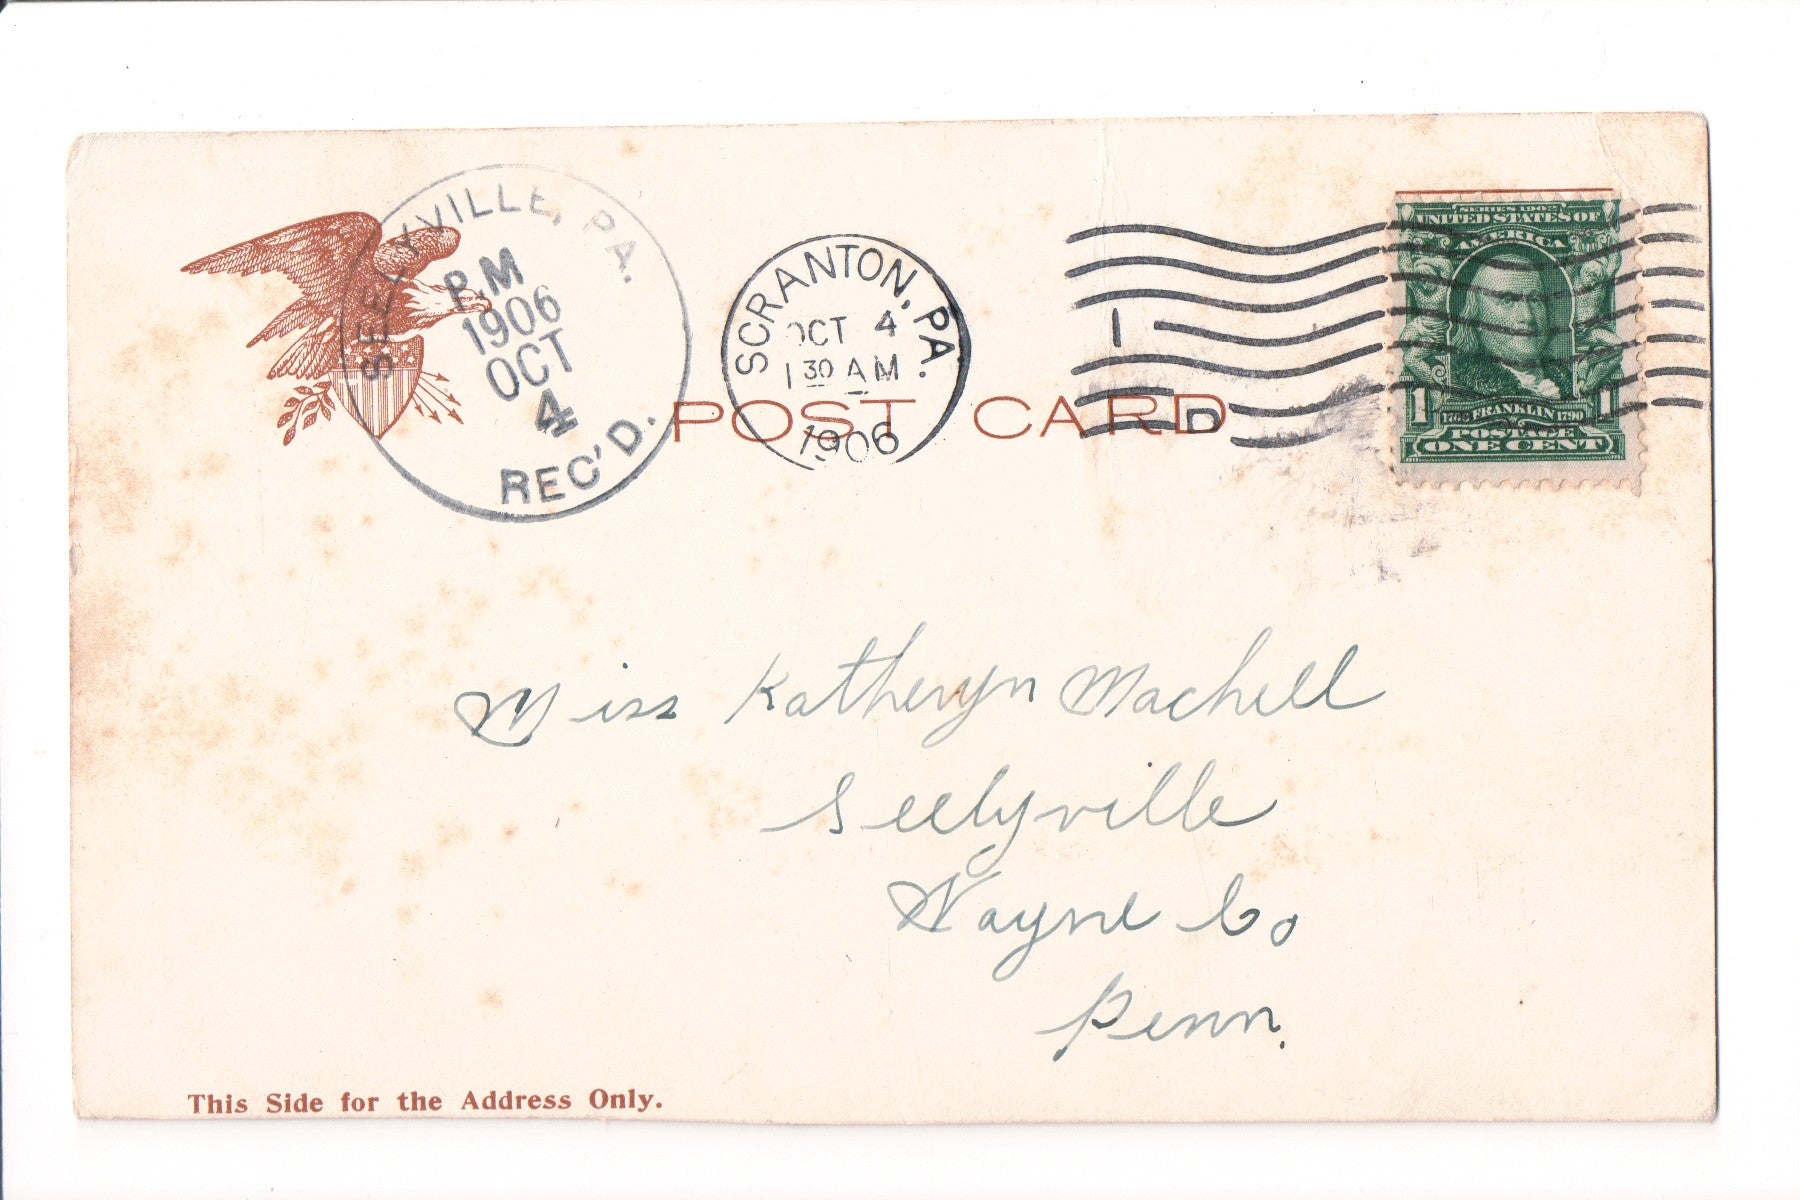 SEELYVILLE, PA.
P.M
1906
OCT
4
REC'D.
SCRANTON, PA.
OCT 4
1 30 AM
1906
1
D
SERIES 1902
UNITED STATES OF
AMERICA
1 1706 FRANKLIN 1790 1
POSTAGE
ONE CENT
POST CARD
Miss Katheryn Machell
Seelyville
Wayne Co
Penn.
This Side for the Address Only.